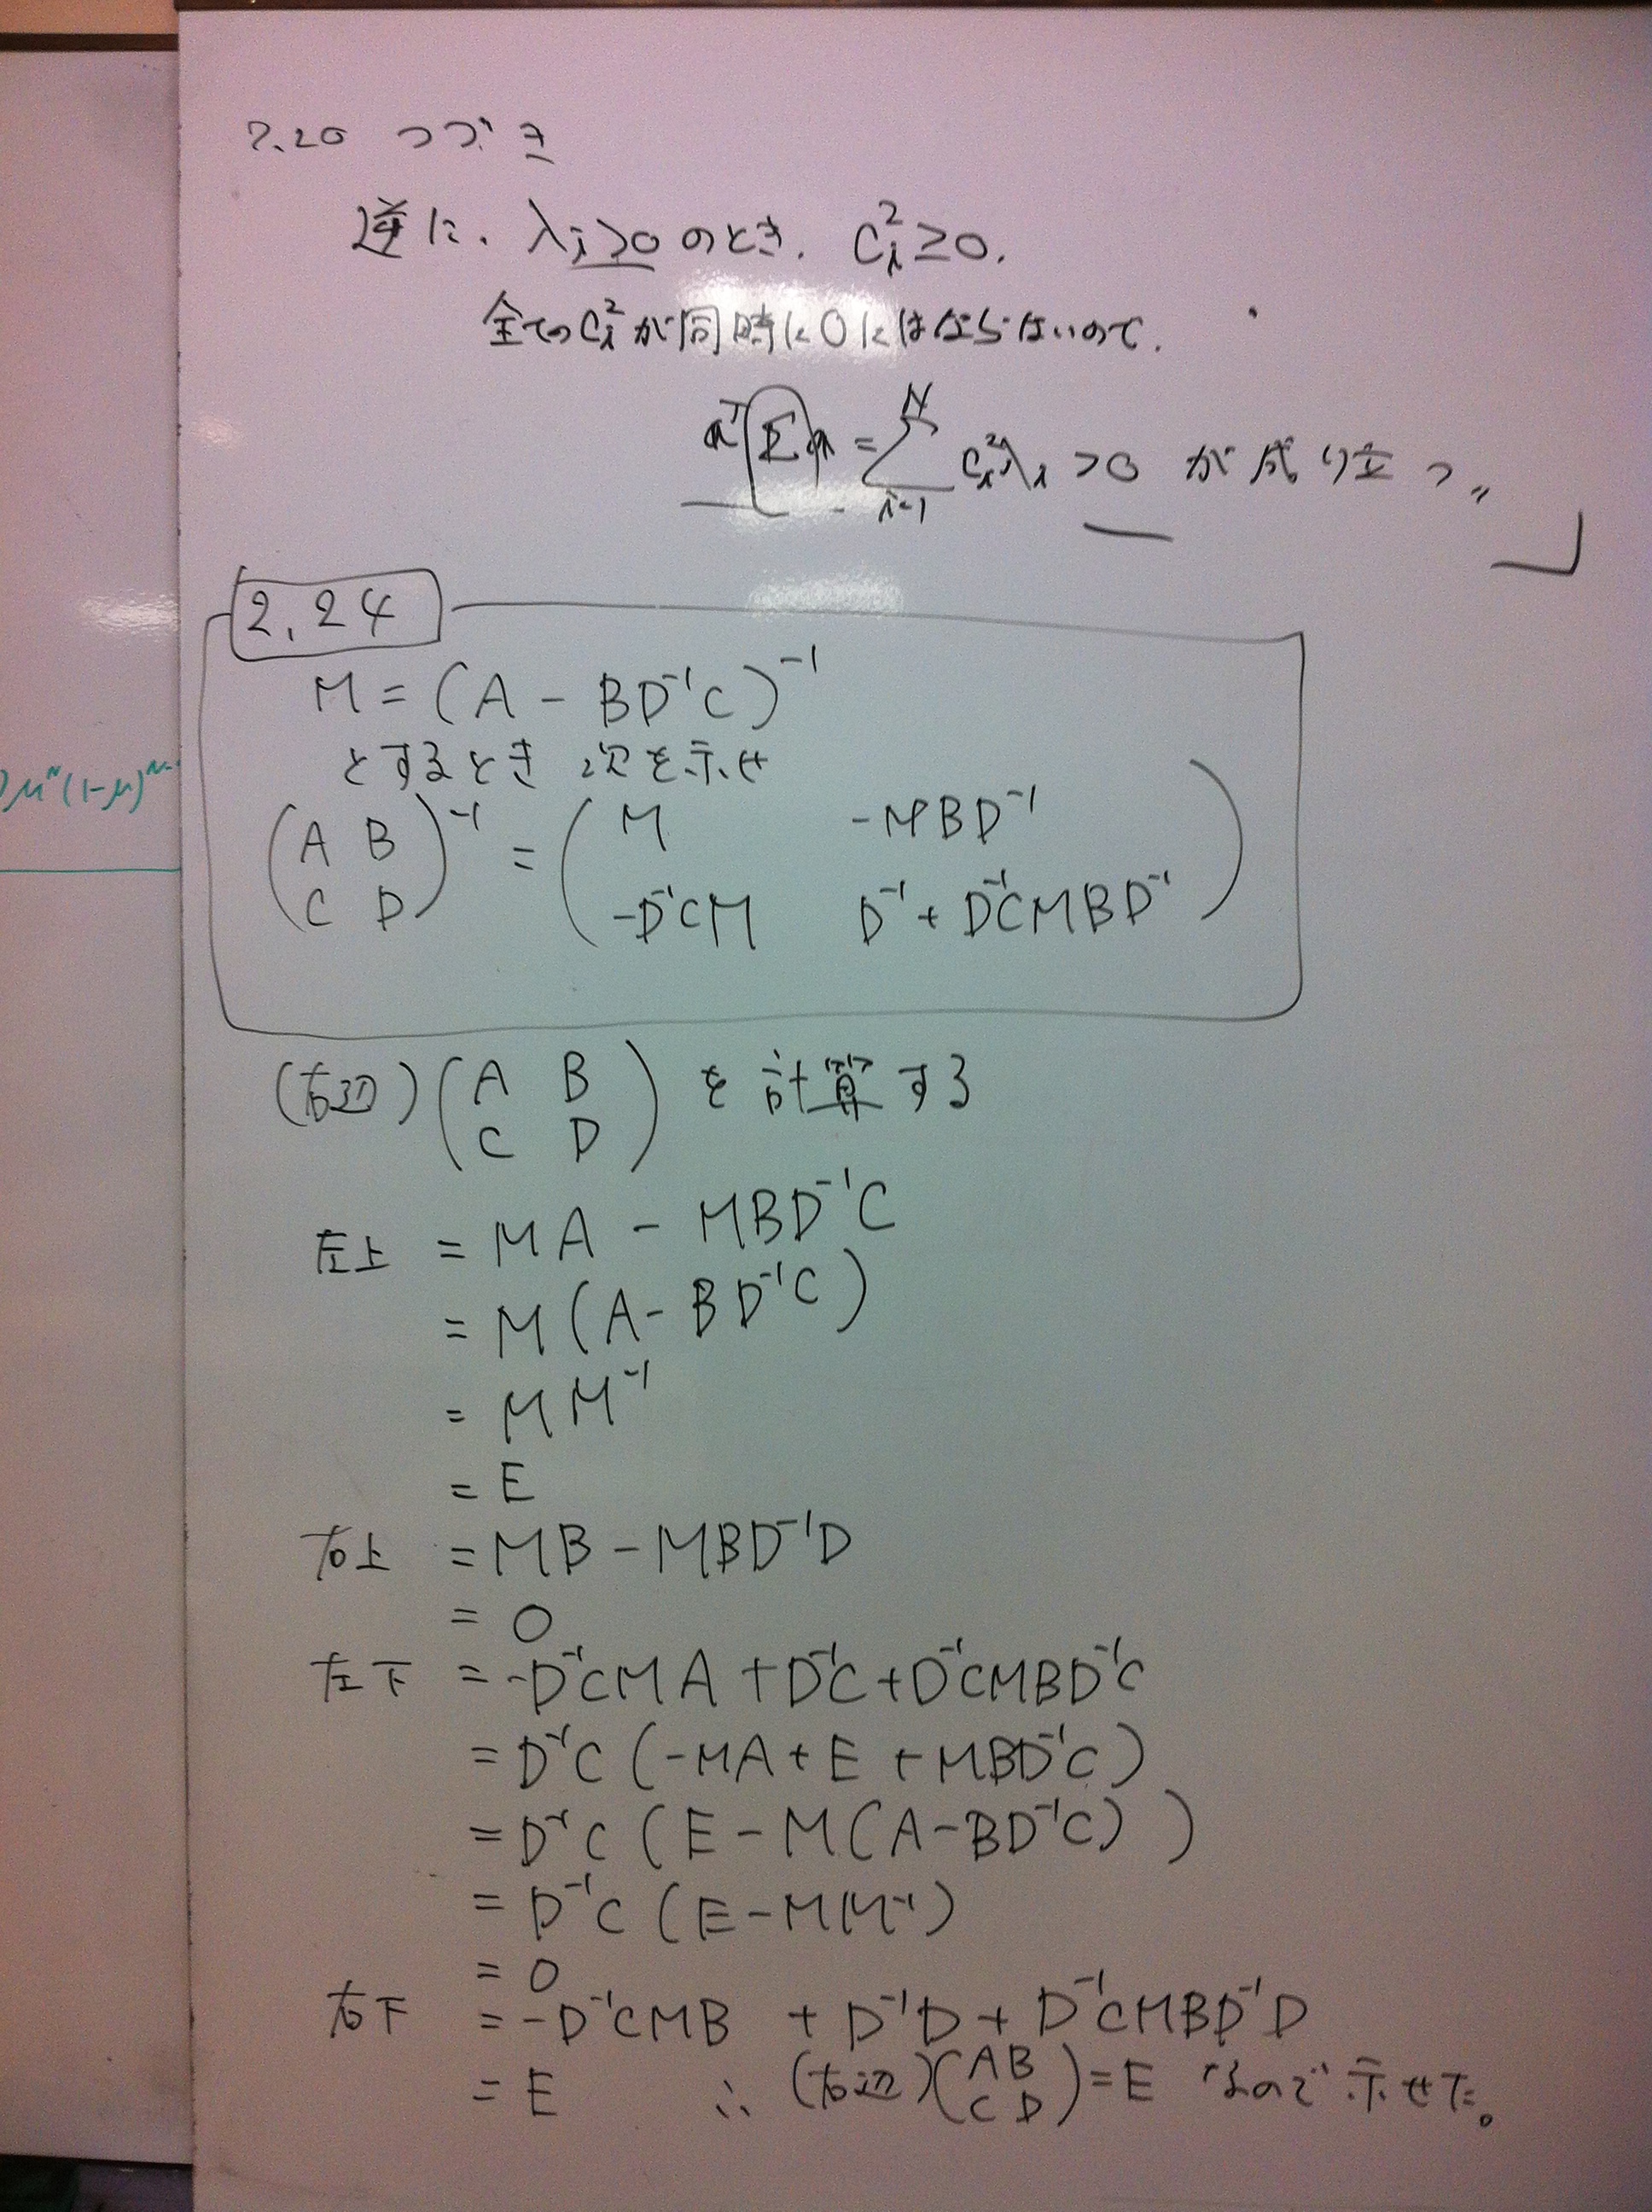 2.20 つづき
逆に、λi>0のとき、Ci²≥0.
全てのCi²が同時に0にはならないので、
aᵀΣa = Σ_{i=1}^{N} Ci²λi >0 が成り立つ〃
2.24
M = (A - BD⁻¹C)⁻¹
とするとき 次を示せ
(A B)⁻¹ = (M -MBD⁻¹
C D) -D⁻¹CM D⁻¹ + D⁻¹CMBD⁻¹)
(右辺)(A B
C D) を計算する
左上 = MA - MBD⁻¹C
= M(A - BD⁻¹C)
= MM⁻¹
= E
右上 = MB - MBD⁻¹D
= 0
左下 = -D⁻¹CMA + D⁻¹C + D⁻¹CMBD⁻¹C
= D⁻¹C(-MA + E + MBD⁻¹C)
= D⁻¹C(E - M(A - BD⁻¹C))
= D⁻¹C(E - MM⁻¹)
= 0
右下 = -D⁻¹CMB + D⁻¹D + D⁻¹CMBD⁻¹D
= E ∴ (右辺)(A B
C D) = E なので示せた。
μᴺ(1-μ)